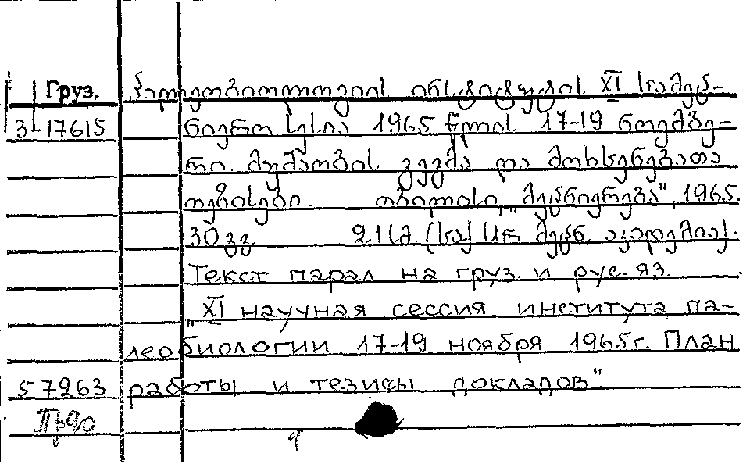 Груз. პალეობიოლოგიის ინსტიტუტის XI სამეც-
3-17615 ნიერო სესია 1965 წლის 17-19 ნოემბე-
რი. მუშაობის გეგმა და მოხსენებათა
თეზისები. თბილისი, „მეცნიერება", 1965.
30 გვ. 21 სმ (საქ. სსრ მეცნ. აკადემია).
Текст парал на груз. и рус. яз.
„XI научная сессия института па-
леобиологии 17-19 ноября 1965г. План
57963 работы и тезисы докладов"